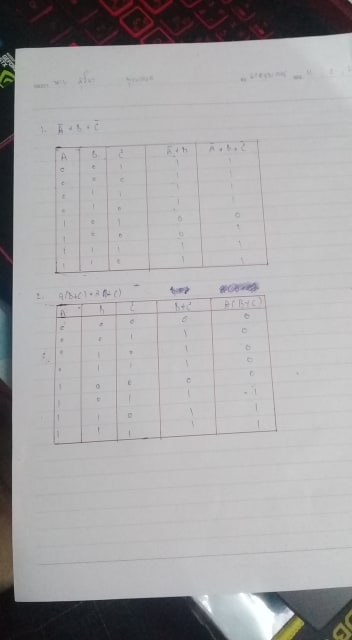 1. Ā + B + C̄
A B C Ā+B Ā+B+C̄
0 0 1 1 1
0 0 0 1 1
0 1 1 1 1
0 1 0 1 1
1 0 1 0 0
1 0 0 0 1
1 1 1 1 1
1 1 0 1 1
2.
A B C B+C A(B+C)
0 0 0 0 0
0 0 1 1 0
0 1 0 1 0
0 1 1 1 0
1 0 0 0 0
1 0 1 1 1
1 1 0 1 1
1 1 1 1 1